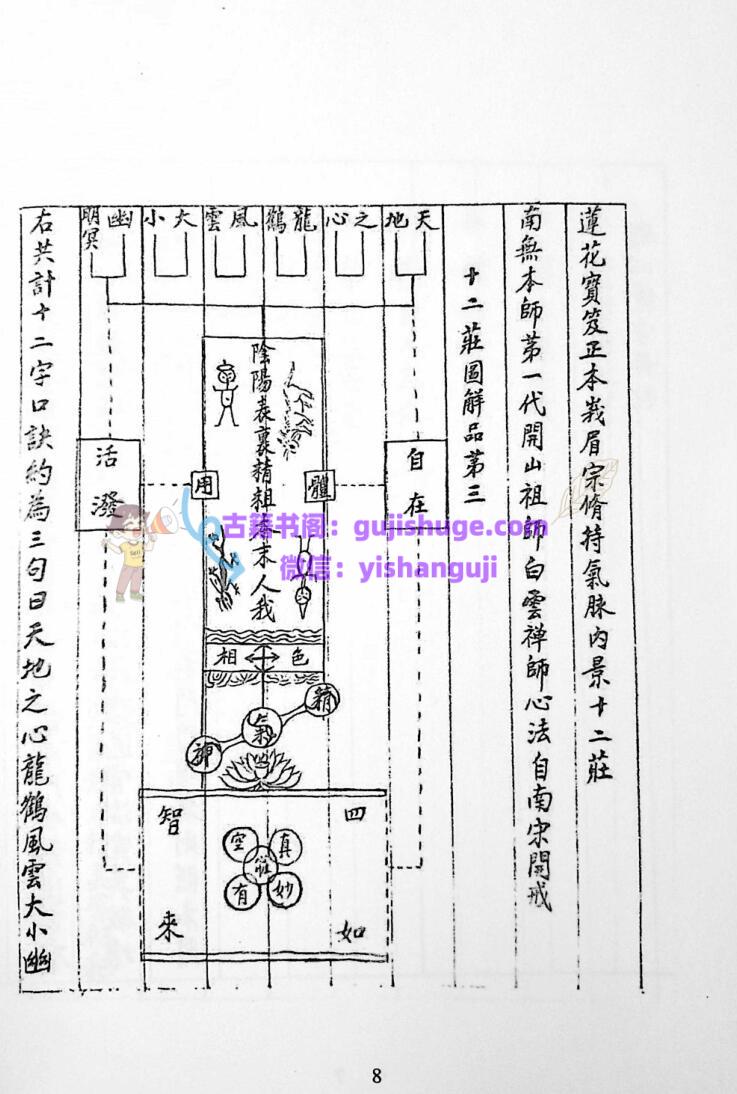 蓮花寶笈正本峩眉宗脩持氣脉內景十二莊
南無本師第一代開山祖師白雲禅師心法自南宋開戒
十二莊圖解品第三
天地之心龍鶴風雲大小幽明冥
自在
活潑
體
用
陰陽表裏精粗本末人我
色相
精
氣
神
四智如來
真空妙有
莊
右共計十二字口訣約為三句曰天地之心龍鶴風雲大小幽
古籍书阁：gujishuge.com
微信：yishanguji
8